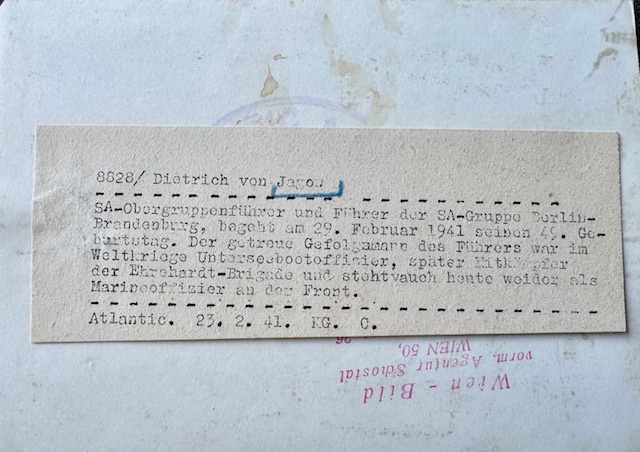 8828/ Dietrich von Jagow
SA-Obergruppenführer und Führer der SA-Gruppe Berlin-
Brandenburg, begeht am 29. Februar 1941 seinen 49. Ge-
burtstag. Der getreue Gefolgsmann des Führers war im
Weltkriege Unterseebootoffizier, später Mitkämpfer
der Ehrehardt-Brigade und stehtvauch heute weider als
Marineoffizier an der Front.
Atlantic. 23. 2. 41. KG. C.
Wien - Bild
vorm. Agentur Schostal
WIEN 50,